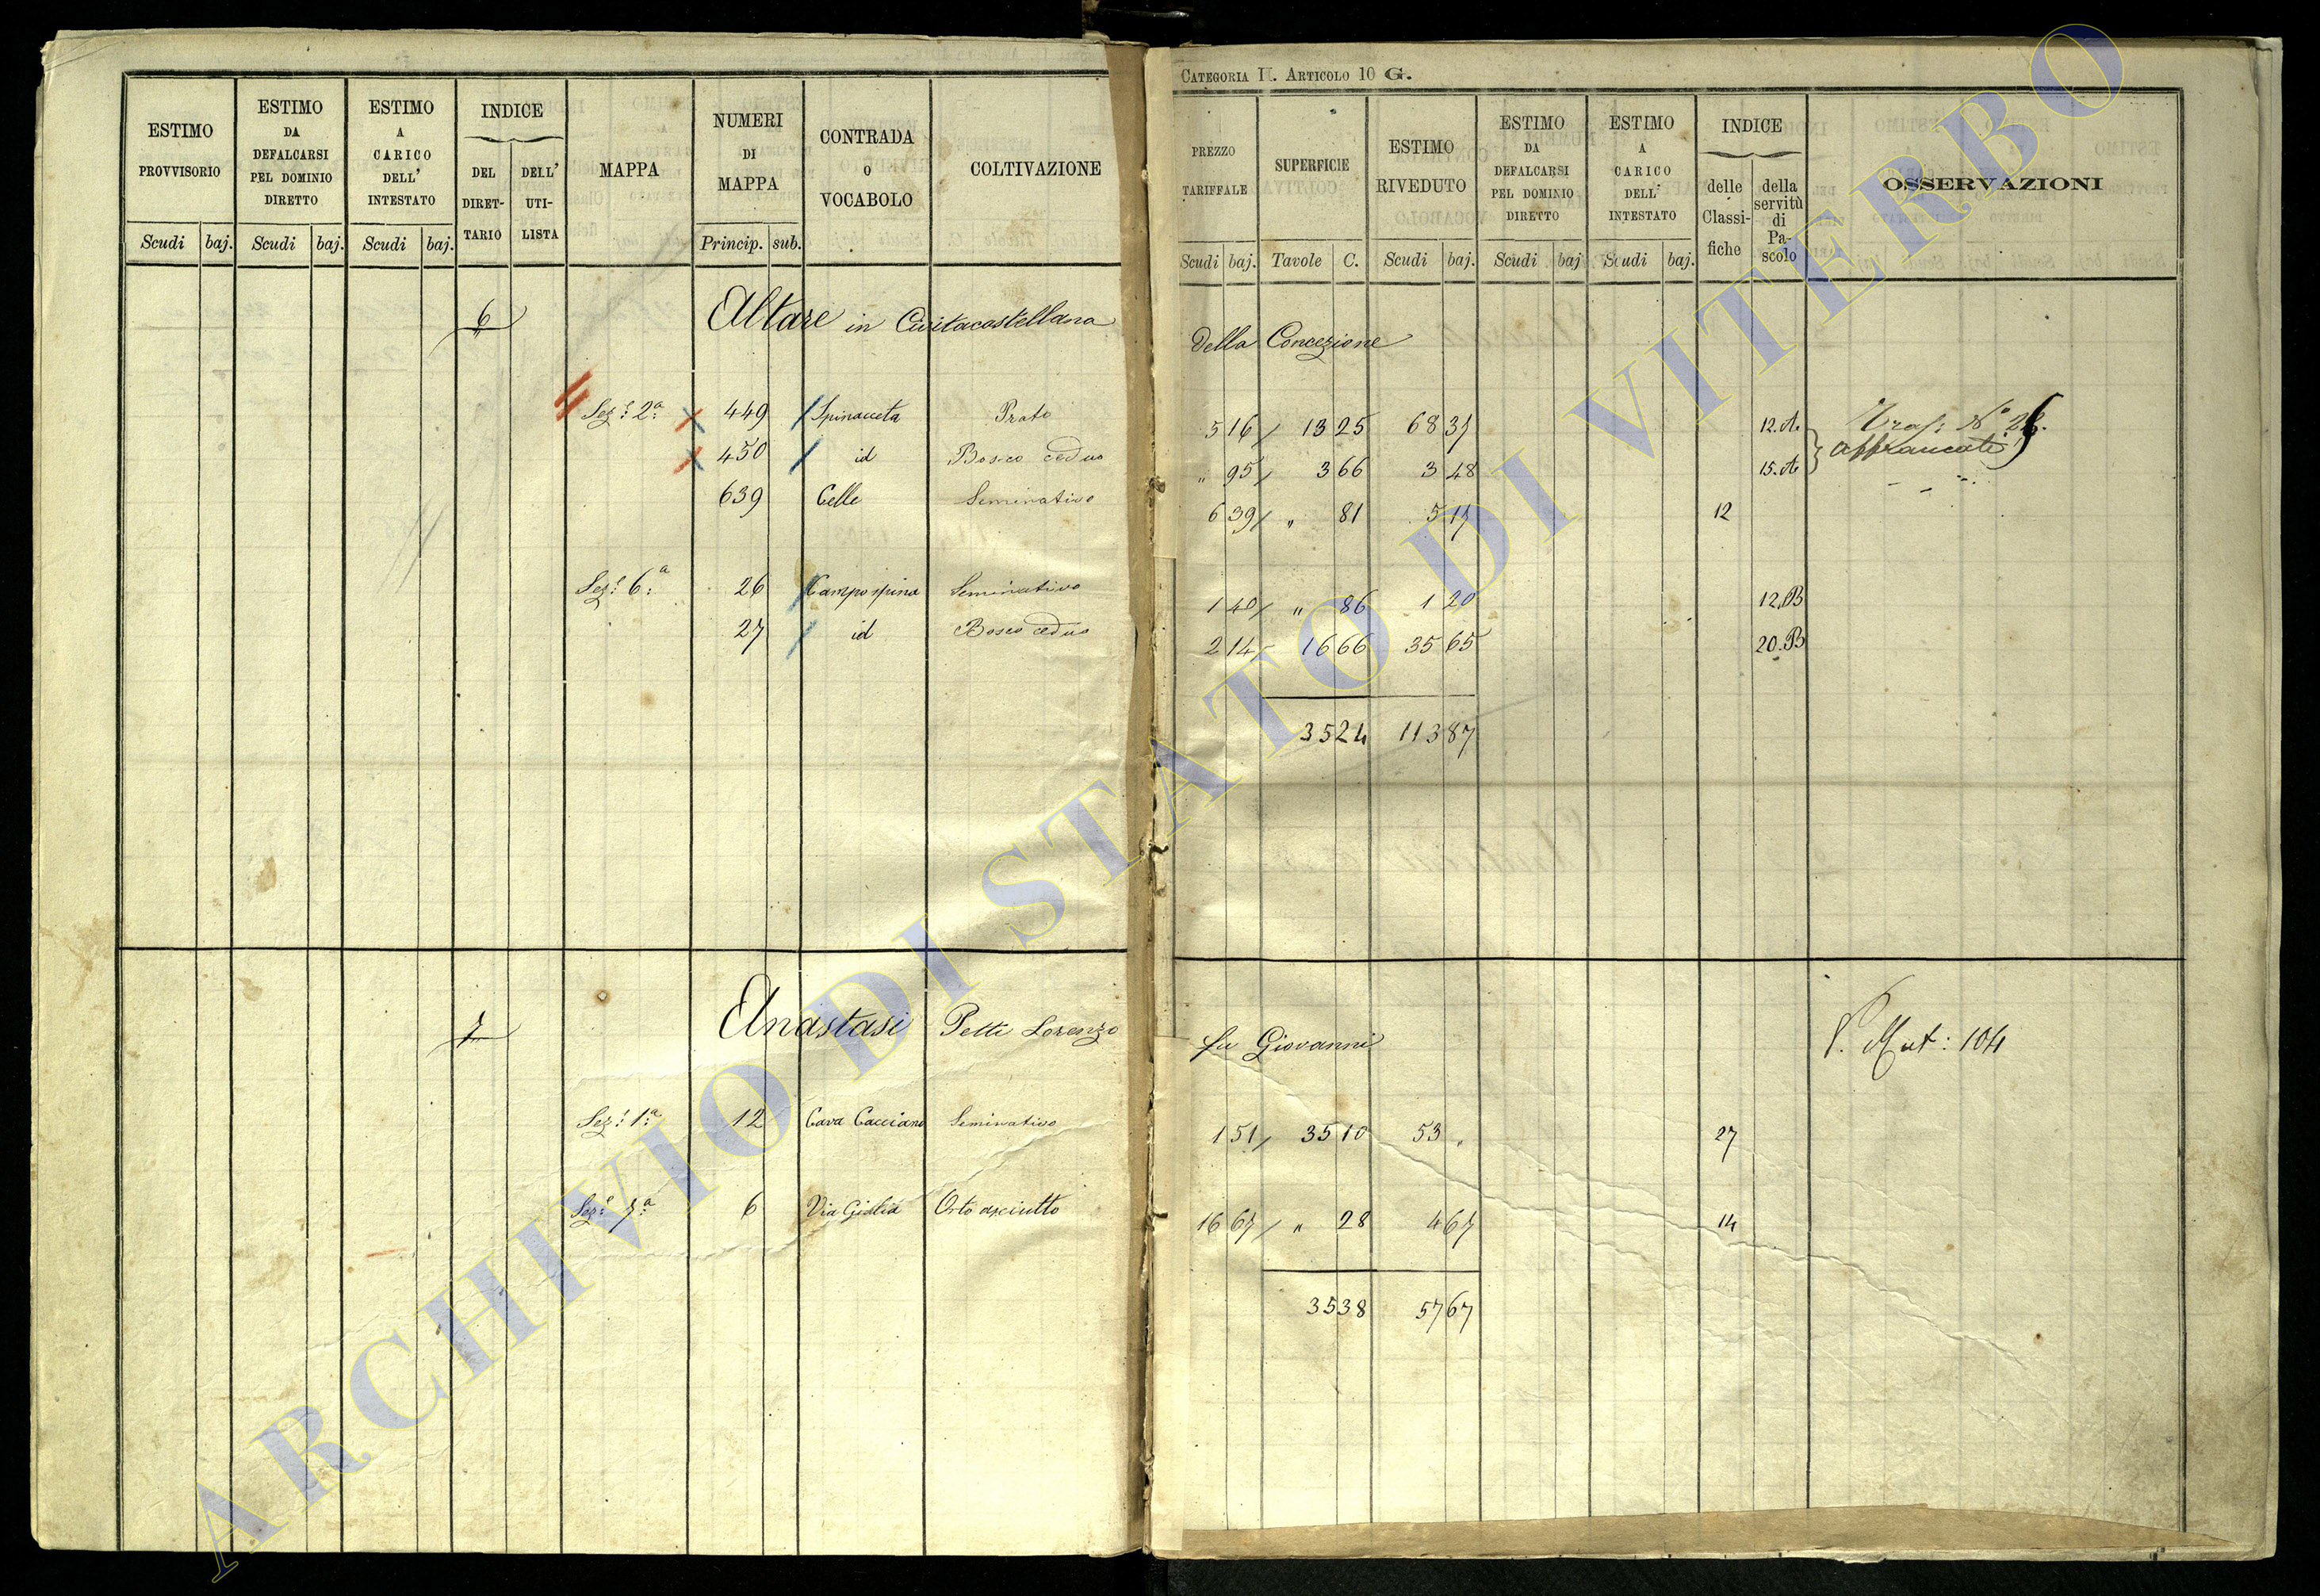 CATEGORIA II. ARTICOLO 10 G.
ESTIMO PROVVISORIO
ESTIMO DA DEFALCARSI PEL DOMINIO DIRETTO
ESTIMO A CARICO DELL' INTESTATO
INDICE
DEL DIRET-TARIO
DELL' UTI-LISTA
MAPPA
NUMERI DI MAPPA
CONTRADA O VOCABOLO
COLTIVAZIONE
Scudi baj. Scudi baj. Scudi baj. Princip. sub.
PREZZO TARIFFALE
SUPERFICIE
ESTIMO RIVEDUTO
ESTIMO DA DEFALCARSI PEL DOMINIO DIRETTO
ESTIMO A CARICO DELL' INTESTATO
INDICE
delle Classi-fiche
della servitù di Pa-scolo
OSSERVAZIONI
Scudi baj. Tavole C. Scudi baj. Scudi baj Scudi baj.
6 Altare in Civitacastellana della Concezione
Sez.e 2.a 449 Spinacceta Prato 5 16 13 25 68 37 12.A.
450 id Bosco ceduo " 95 3 66 3 48 15.A
Affrancati
639 Celle Seminativo 6 39 " 81 5 17 12
Sez.e 6.a 26 Campospina Seminativo 1 40 " 86 1 20 12.B
27 id Bosco ceduo 2 14 16 66 35 65 20.B
35 24 113 87
7 Anastasi Petti Lorenzo fu Giovanni
V. Mut: 104
Sez.e 1.a 12 Cava Cacciano Seminativo 1 51 35 10 53 " 27
Sez.e 7.a 6 Via Giulia Orto asciutto 16 67 " 28 4 67 14
35 38 57 67
ARCHIVIO DI STATO DI VITERBO